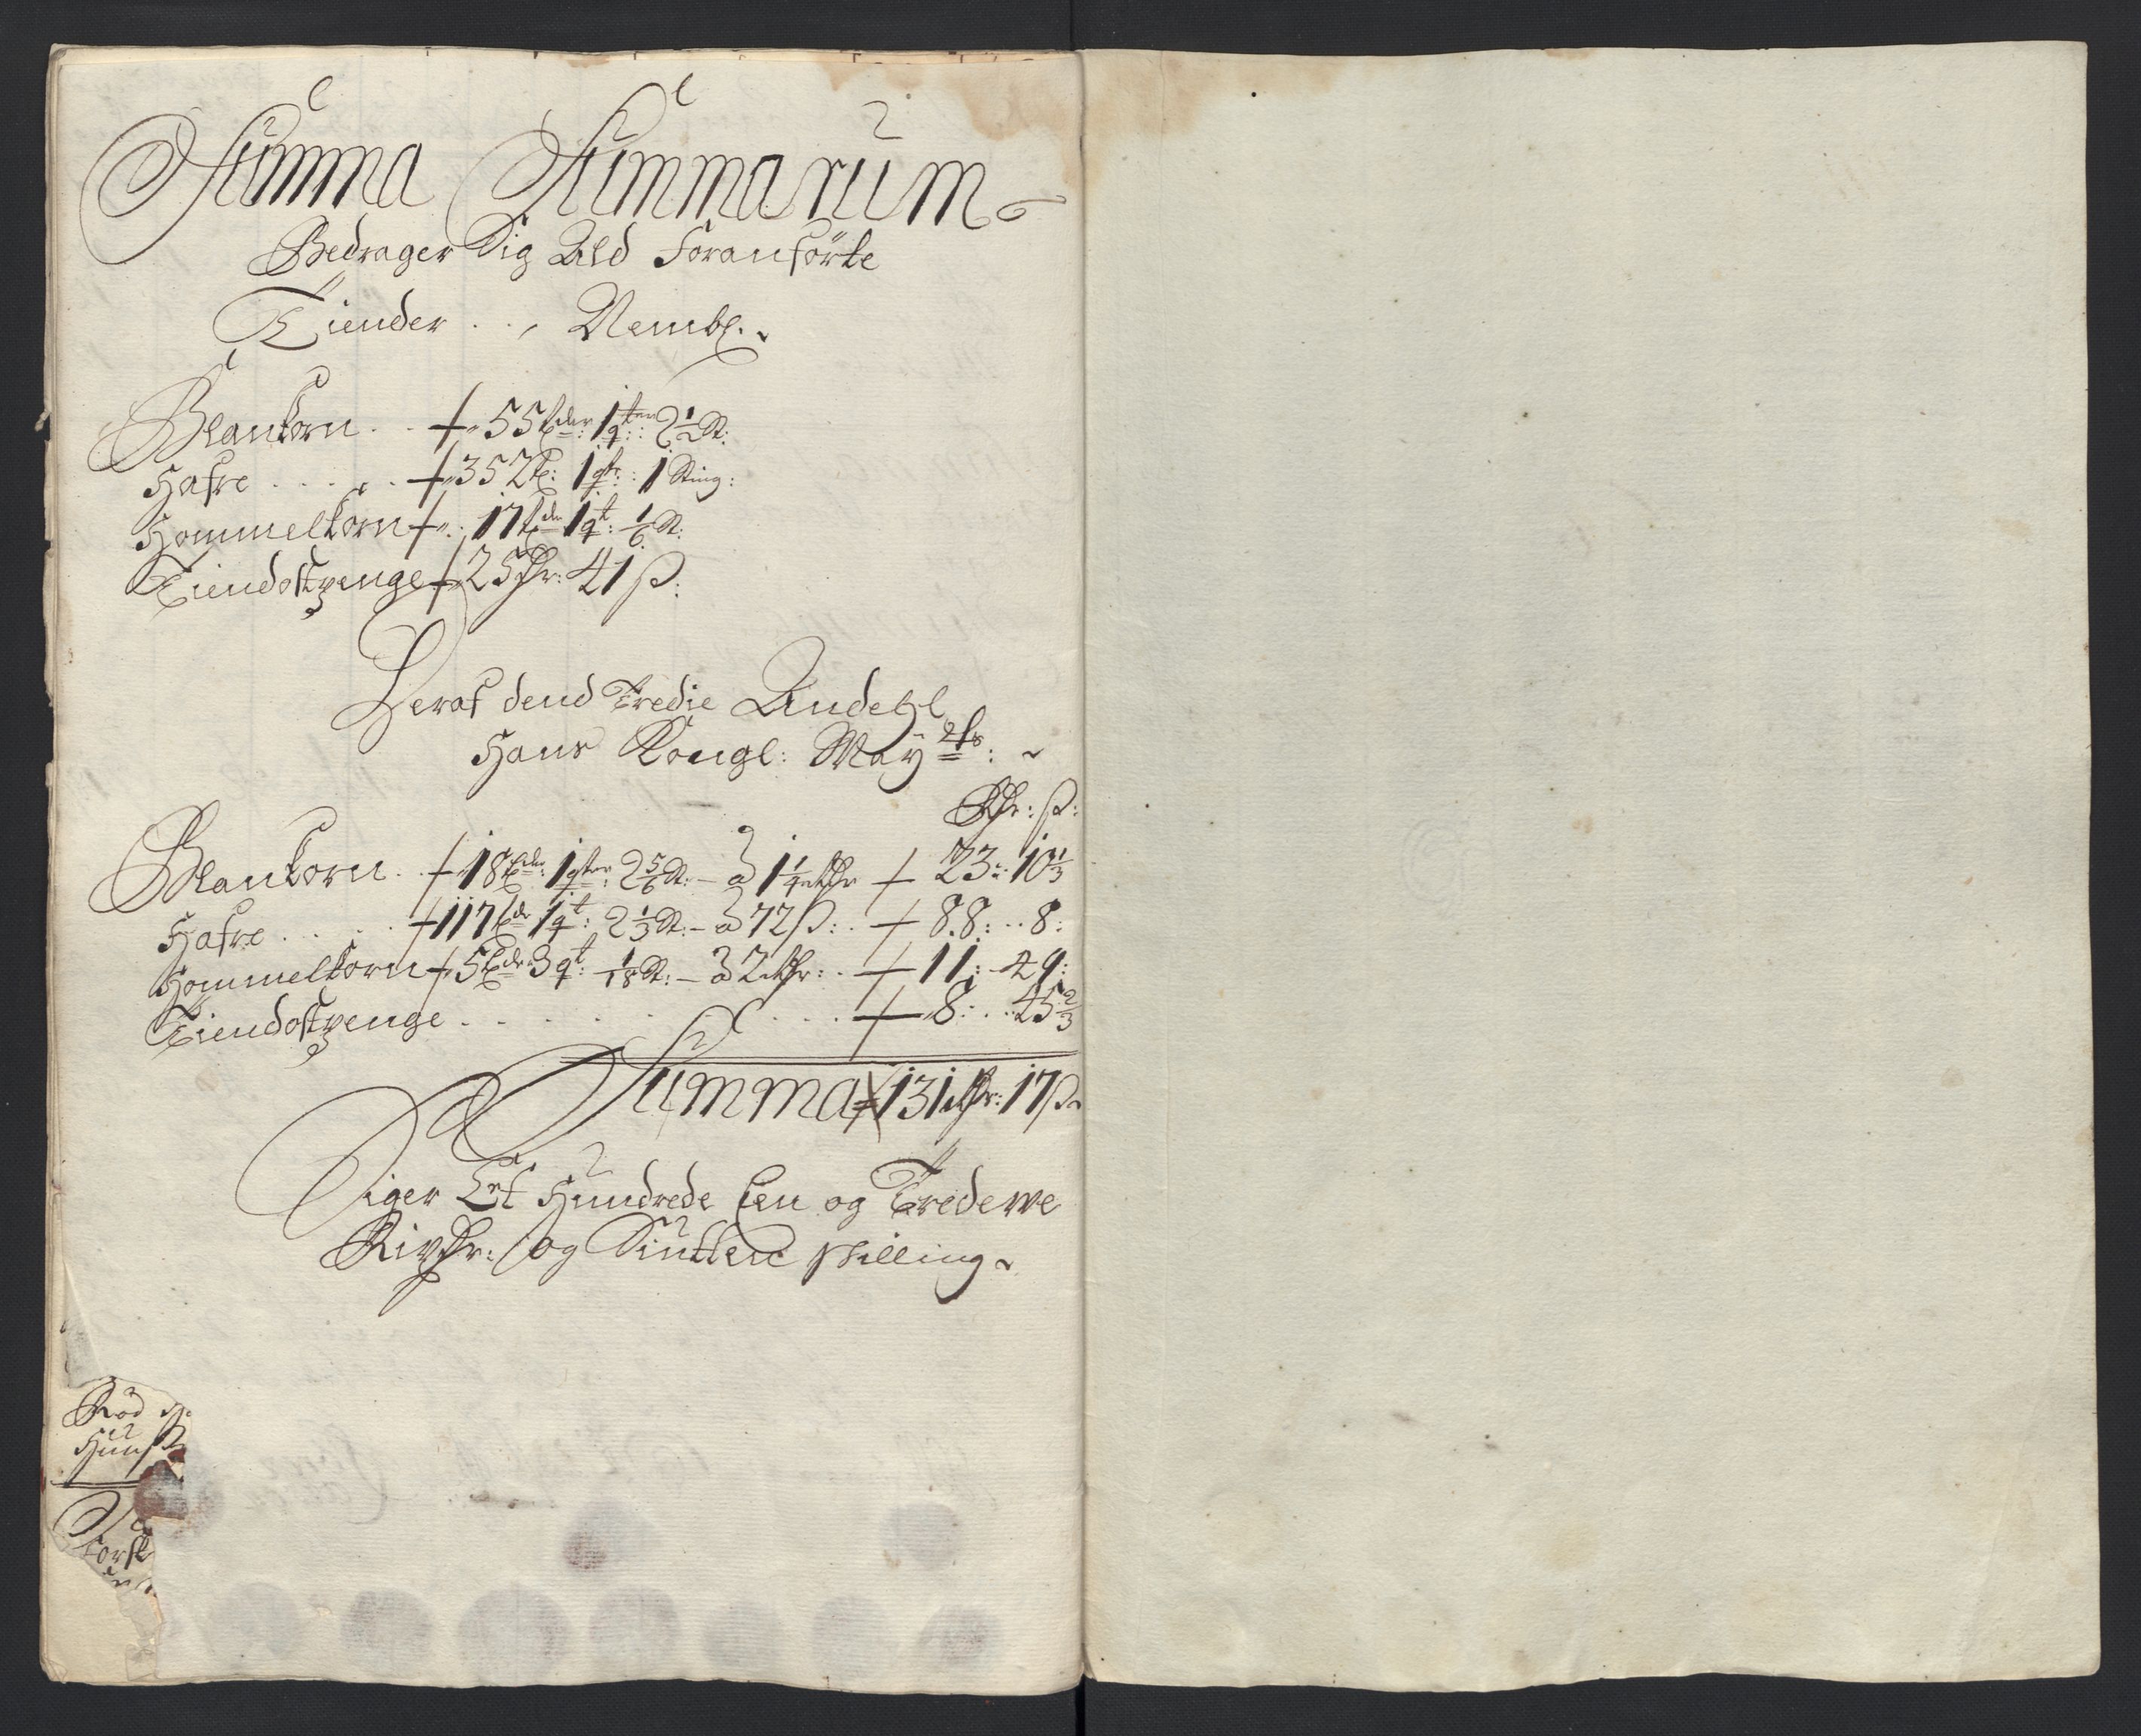 Summa Summarum
Bedrager Sig Ald Foranförte
Tiender . . , Nembl.
Blankorn . . 55 tder: 1 qter: 2 1/2 St:
Hafre . . . . . 352 t: 1 qt: 1 Sting:
Hommelkorn . 17 tdr 1 qt: 1/6 St:
Tiendostpenge 25 Rdr: 41 ß:
Deraf dend Tredie Andehl
Hans Kongl: Mayts:
Rdr: ß:
Blankorn . 18 tdr: 1 qter: 2 5/6 St: – a 1 1/4 Rdr 23: 10 1/3
Hafre . . . . 117 tdr 1 qt: 2 1/3 St: – a 72 ß: . 88: . . 8:
Hommelkorn 5 tdr 3 qt: 1/18 St: – a 2 Rdr: . 11: 49:
Tiendostpenge . . . . . . . . . 8: . . 45 2/3
Summa 131 Rdr: 17 ß
Siger Et Hundrede Een og Tredewe
Rixdr: og Siutten skilling
Röd
Huus
Torsk